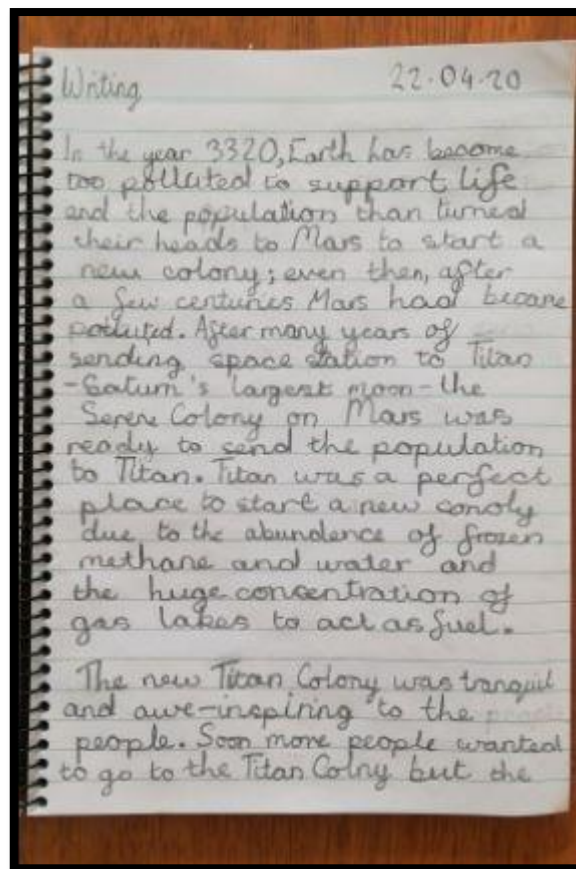 Writing 22.04.20
In the year 3320, Earth has become
too polluted to support life
and the population than turned
their heads to Mars to start a
new colony; even then, after
a few centuries Mars had become
polluted. After many years of
sending space station to Titan
-Saturn's largest moon-the
Serene Colony on Mars was
ready to send the population
to Titan. Titan was a perfect
place to start a new conoly
due to the abundence of frozen
methane and water and
the huge concentration of
gas lakes to act as fuel.
The new Titan Colony was tranquil
and awe-inspiring to the
people. Soon more people wanted
to go to the Titan Colny but the